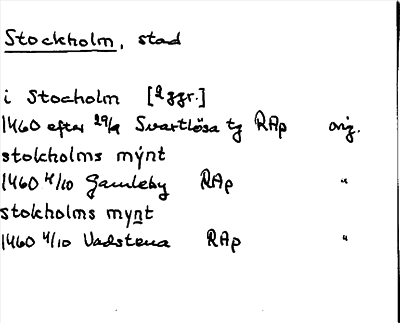 Stockholm, stad
i Stocholm [2 ggr.]
1460 efter 29/9 Svartlösa tg RAp orig.
stokholms mýnt
1460 4/10 Gamleby RAp "
stokholms mynt
1460 4/10 Vadstena RAp "